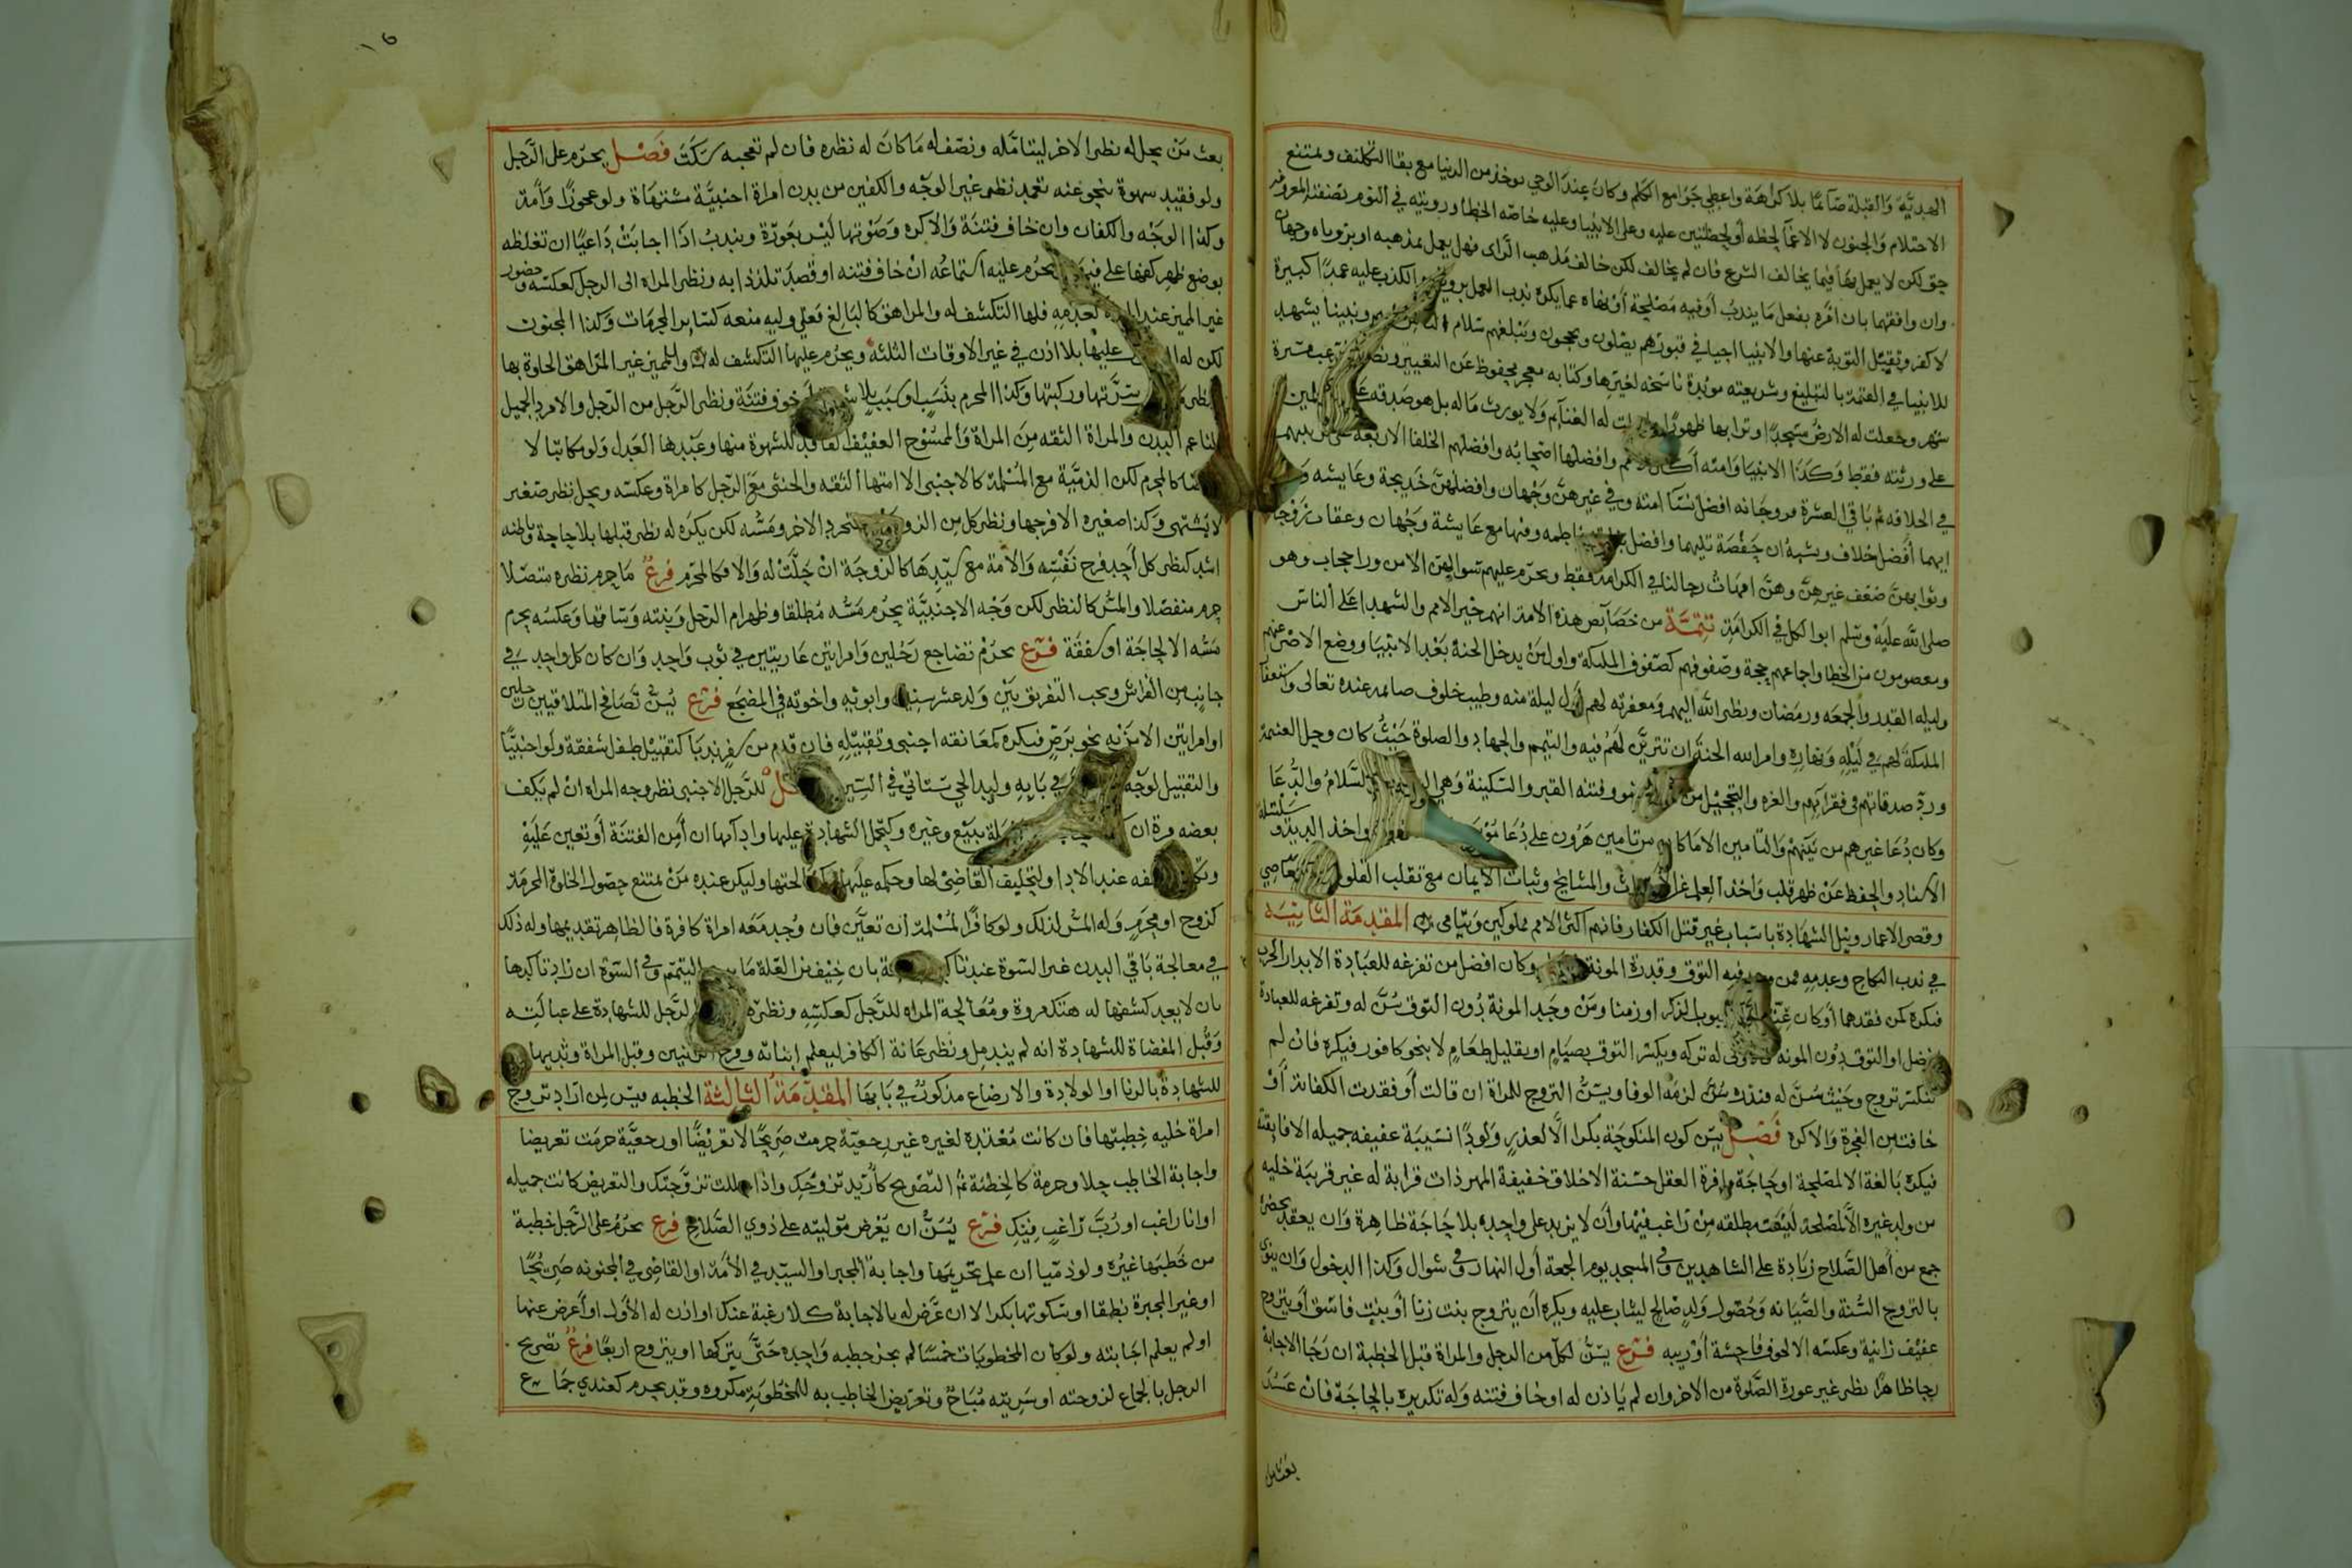 الهديّة والقبلة صائمًا بلا كراهة واعطي جوامع الكلم وكان عند الوحي يوخذ من الدنيا مع بقا التكليف ويمتنع
الاحتلام والجنون لا الاغما لحظه أو لحظتين عليه وعلى الانبيا وعليه خاصه الخطا ورويته في النوم بصفته المعروفه
حق لكن لا يعمل بها فيما يخالف الشرع فان لم يخالف لكن خالف مذهب الراى فهل يعمل بمذهبه او برؤياه وجهان
وان وافقهما بان امره بفعل ما يندب أو فيه مصلحة أو نهاه عما يكره ندب العمل الكذب عليه عمدًا كبيرة
لا كفر وتقبل التوبة عنها والانبيا احيا في قبورهم يصلون ويحجون وتبلغهم سلام ونبينا يشهد
للانبيا في القيمة بالتبليغ وشريعته موبدة ناسخه لغيرها وكتابه معجز محفوظ عن التغيير مسيرة
شهر وجعلت له الارض مسجدًا وترابها طهورًا له الغنايم ولا يورث ماله بل هو صدقه
على ورثته فقط وكذا الانبيا وامته وافضلها اصحابه وافضلهم الخلفا الاربعة
في الخلافه ثم باقي العشرة وزوجاته افضل نسا امته وفي غيرهن وجهان وافضلهن خديجة وعايشه
ايهما أفضل خلاف ويشبه ان حفصة تليهما وافضل فاطمه وفيها مع عايشة وجهان وعقاب زوجاته
وثوابهن ضعف غيرهن وهن امهات رجالنا في الكرامة فقط ويحرم عليهم سوالهن الا من ورا حجاب وهو
صلى الله عليه وسلم ابو الكل في الكرامة تتمّة من خصايص هذه الامة انهم خير الامم والشهدا على الناس
ومعصومون من الخطا واجماعهم حجة وصفوفهم كصفوف الملئكة واول من يدخل الجنة بعد الانبيا ووضع الاصر عنهم
وليله القدر والجمعه ورمضان ونظر الله اليهم ومغفرته لهم أول ليلة منه وطيب خلوف صايمه عنده تعالى واستغفار
الملئكة لهم في ليله ونهاره وامر الله الجنة ان تتزين لهم فيه والتيمم والجهاد والصلوة حيث كان وحل الغنيمة
ورد صدقاتهم في فقرائهم والغره والتحجيل من وفتنه القبر والسكينة وهي السلام والدعا
وكان دعا غيرهم من بيتهم والتامين الا ما كان من تامين هرون على دعا موسى واخذ البريه وسلسلة
الاسناد والحفظ عن ظهر قلب واخذ العلم غر والمشايخ وثبات الايمان مع تقلب القلوب المعاصي
وقصر الاعمار ونيل الشهادة باسباب غير قتل الكفار فانهم اكثر الامم مملوكين ويتامى المقدمة الثانية
في ندب النكاح وعدمه فمن وجد فيه التوق وقدرة المونة وكان افضل من تفرغه للعبادة الا بدار الحرب
فيكره لمن فقدهما أو كان عنينًا الذكر او زمنا ومن وجد المونة دون التوق سن له وتفرغه للعبادة
افضل او التوق دون المونه له تركه ويكسر التوق بصيام او بقليل طعام لا بنحو كافور فيكره فان لم
تنكسر تزوج وحيث سن له فنذره لزمه الوفا ويسن التزوج للمراة ان قالت أو فقدت الكفاية أو
خافت من الفجرة والا كره فصل يسن كون المنكوحة بكرا الا لعذر ولودًا نسيبة عفيفه جميله الا فايقة
فيكره بالغة الا لمصلحة او حاجة وافرة العقل حسنة الاخلاق خفيفة المهر ذات قرابة له غير قريبة خليه
من ولد غيره الا لمصلحة ليست مطلقه من راغب فيها وأن لا يزيد على واحده بلا حاجة ظاهرة وان يعقد بحضرة
جمع من أهل الصلاح زيادة على الشاهدين وفي المسجد يوم الجمعة أول النهار وفي شوال وكذا الدخول وان ينوي
بالتزوج السنة والصيانه وحصول ولد صالح ليثاب عليه ويكره أن يتزوج بنت زنا أو بنت فاسق أو يتزوج
عفيف زانية وعكسه الا لخوف فاحشة أو ريبه فرع يسن لكل من الرجل والمراة قبل الخطبة ان رجا الاجابة
رجا ظاهرًا نظر غير عورة الصلوة من الاخر وان لم ياذن له او خاف فتنه وله تكريره بالحاجة فان عسر
بعث من
بعث من يحل له نظر الاخر ليتامله ونصف له ما كان له نظره فان لم تعجبه سكت فصل يحرم على الرجل
ولو فقيد شهوة بنحو عنه تعمد نظر غير الوجه والكفين من بدن امراة اجنبية مشتهاة ولو عجوزًا وأمة
وكذا الوجه والكفان وان خاف فتنة والا كره وصوتها ليس بعورة ويندب اذا اجابت داعيًا ان تغلظه
بوضع ظهر كفها على فيها يحرم عليه استماعه ان خاف فتنه او قصد تلذذا به ونظر المراة الى الرجل كعكسه وحضور
غير المميز عند كعدمه فلها التكشف له والمراهق كالبالغ فعلى وليه منعه كساير المحرمات وكذا المجنون
لكن له عليها بلا اذن في غير الاوقات الثلثة ويحرم عليها التكشف له وللمميز غير المراهق الخلوة بها
سرتها وركبتها وكذا المحرم بنسب او سبب بلا خوف فتنة ونظر الرجل من الرجل والامرد الجميل
الناعم البدن والمراة الثقه من المراة والممسوح العفيف الفاقد للشهوة منها وعبدها العدل ولو مكاتبا لا
كالمحرم لكن الذمية مع المسلمة كالاجنبي الا امتها الثقه والخنثى مع الرجل كامراة وعكسه ويحل نظر صغير
لا يشتهى وكذا صغيره الا فرجها ونظر كل من بتجرد الاخر ومسه لكن يكره له نظر قبلها بلا حاجة وباطنه
اشد كنظر كل أحد فرج نفسه والامة مع سيدها كالزوجة ان حلت له والا فكالمحرم فرع ما حرم نظره متصلا
حرم منفصلا والمس كالنظر لكن وجه الاجنبية يحرم مسه مطلقا وظهر ام الرجل وبنته وساقها وعكسه يحرم
مسه الا لحاجة او شفقة فرع يحرم تضاجع رجلين وامراتين عاريتين في ثوب واحد وان كان كل واحد في
جانب من الفراش ويجب التفريق بين ولد عشر سنين وابويه واخوته في المضجع فرع يسن تصافح المتلاقيين رجلين
او امراتين الا من به نحو برص فيكره كمعانقه اجنبي وتقبيله فان قدم من سفر ندبا كتقبيل طفل شفقة ولو اجنبيًا
والتقبيل لوجه في بابه وليد الحي ستاتي في السير للرجل الاجنبى نظر وجه المراه ان لم يكف
بعضه مرة ان ببيع وغيره وكتحمل الشهادة عليها وادآيها ان أمن الفتنة أو تعين عليه
عند الادا ولتحليف القاضى لها وحكمه عليها وليكن عنده من يمتنع حصول الخلوة المحرمة
كزوج او محرم وله المس لذلك ولو كافرًا لمسلمة ان تعين فان وجد معه امراة كافرة فالظاهر تقديمها وله ذلك
في معالجة باقي البدن غير السوة عند بان خيف من العلة ما يبيح التيمم وفي السوة ان زاد تاكدها
بان لا يعد كشفها له هتك مروة ومعالجة المراه للرجل كعكسه ونظره الرجل للشهادة على عبالته
وقبل المفضاة للشهادة انه لم يندمل ونظر عانة الكافر ليعلم انباته وفرج وقبل المراة وثديها
للشهادة بالزنا او الولادة والارضاع مذكور في بابها المقدّمة الثالثة الخطبه فيسن لمن اراد تزوج
امراة خليه خطبتها فان كانت معتدة لغيره غير رجعية حرمت صريحًا لا تعريضًا او رجعية حرمت تعريضا
واجابة الخاطب حلا وحرمة كالخطبة ثم التصريح كأريد تزوجك واذا حللت تزوجتك والتعريض كانت جميله
او انا راغب او رب راغب فيك فرع يسن ان يعرض موليته على ذوي الصلاح فرع يحرم على الرجل خطبة
من خطبها غيره ولو ذميا ان علم تحريمها واجابة المجبر او السيد في الامة او القاضي في المجنونه صريحًا
او غير المجبرة نطقا او سكوتها بكرا الا ان عرض له بالاجابة كلا رغبة عنك او اذن له الأول او أعرض عنها
او لم يعلم اجابته ولو كان المخطوبات خمسًا لم يجز خطبه واحده حتى يتركها او يتزوج اربعًا فرع تصريح
الرجل بالجماع لزوجته او سريته مباح وتعريض الخاطب به للمخطوبة مكروه وقد يحرم كعندي جماع